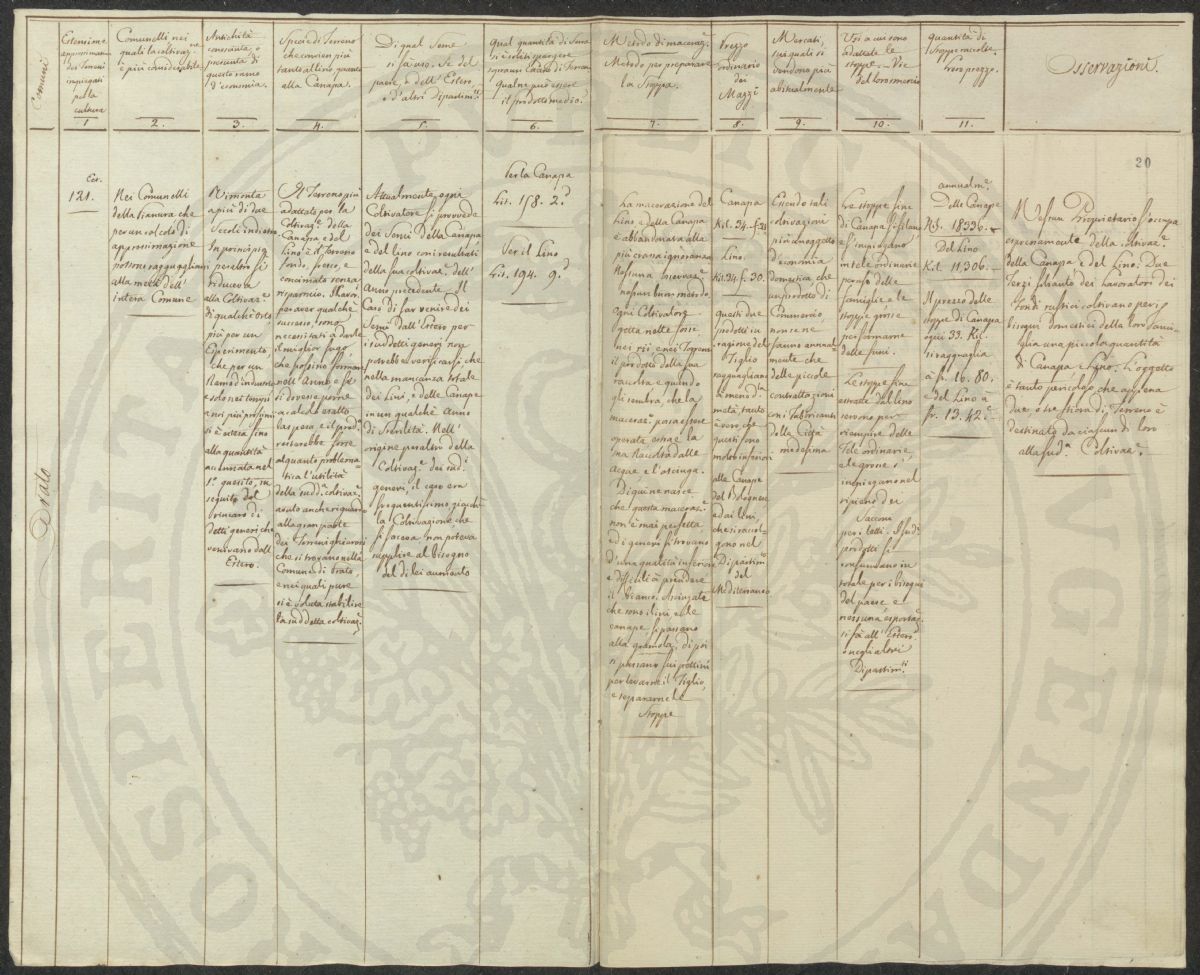 Comuni
Estensione
approssimativa
dei Terreni
impiegati
pella
cultura
1
Comunelli nei
quali la coltivaz.ne
è più considerabile
2.
Antichità
conosciuta, o
presunta di
questo ramo
d'economia.
3.
Specie di Terreno
che convien più
tanto al lino, quanto
alla Canapa.
4.
Di qual Seme
si fa uso. Se del
paese, o dell'Estero
o d'altri Dipartim.ti
5.
Qual quantità di Seme
sopra un Quadro di Terreno
Qual ne può essere
il prodotto medio.
6.
Metodo di maceraz.e
Metodo per preparare
la Stoppa.
7.
Prezzo
ordinario
dei
Mazzi
8.
Mercati,
sui quali si
vendono più
abitualmente
9.
Usi a cui sono
adattate le
stoppe. Vie
del loro smercio
10.
Quantità di
Stoppe raccolte.
Loro prezzo.
11.
Osservazioni.
20
Prato
Ect.
121.
Nei Comunelli
della Pianura che
per un calcolo di
approssimazione
possono ragguagliarsi
alla metà dell'
intera Comune
Rimonta
a più di due
Secoli indietro
In principio
peraltro si
riduceva
alla Coltivaz.e
di qualche Orto,
più per un
Esperimento,
che per un
Ramo d'industria
e solo nei tempi
a noi più prossimi
si è estesa fino
alla quantità
accennata nel
1.° quesito, in
seguito del
rincaro di
detti generi che
venivano dall'
Estero.
Il Terreno più
adattato per la
Coltivaz.e della
Canapa e del
Lino è il Terreno
fondo, fresco, e
concimato senza
risparmio. I Lavor.
per aver qualche
successo, sono
necessitati a darle
il miglior sugo,
che possino formare
nell'Anno e se
si dovesse porne
a calcolo esatto
la spesa e il prod.o
resterebbe forse
alquanto problema-
tica l'utilità
della sudd.a coltivaz.e
avuto anche riguardo
alla gran parte
dei Terreni ghiarosi
che si trovano nella
Comune di Prato,
e nei quali pure
si è voluta stabilire
la suddetta coltivaz.e
Attualmente ogni
Coltivatore si provvede
dei Semi della Canapa
e del Lino coi resultati
della sua coltivaz.e dell'
Anno precedente. Il
Caso di far venire dei
Semi dall'Estero per
i suddetti generi, non
potrebbe verificarsi che
nella mancanza totale
dei Lini, e delle Canape
in un qualche Anno
di Sterilità. Nell'
origine peraltro della
Coltivaz.e dei sud.i
generi, il caso era
frequentissimo, giacchè
la Coltivazione che
si faceva non poteva
supplire al bisogno
del di lei aumento
Per la Canapa
Lit. 158. 2.d
Per il Lino
Lit. 194. 9.d
La macerazione del
Lino e della Canapa
è abbandonata alla
più crassa ignoranza
Nessuna
nessun buon metodo
ogni Coltivatore
getta nelle fosse
nei rii e nei Torrenti
il prodotto della sua
raccolta e quando
li sembra, che la
maceraz.e possa essere
operata estrae la
sua Raccolta dalle
acque e l'asciuga.
Di qui ne nasce
che questa maceraz.e
non è mai perfetta,
ed i generi si trovano
d'una qualità inferiore
e difficili a prendere
il bianco. Asciugate
che sono i lini e le
canape si passano
alla gramola, di poi
si passano sui pettini
per levarne il Tiglio,
e separarne le
Stoppe
Canapa
Kil. 34. f. 25
Lino.
Kil. 34. f. 30.
Questi due
prodotti in
ragione del
Tiglio
ragguagliano
a meno d.la
metà, tanto
è vero che
questi sono
molto inferiori
alle Canape
del Bolognese
e dai lini,
che si raccol-
gono nel
Dipartim.to
del
Mediterraneo
Essendo tali
coltivazioni
più un oggetto
d'economia
domestica, che
un prodotto di
Commercio
non se ne
fanno annual-
mente che
delle piccole
contrattazioni
coi Fabbricanti
della Città
medesima
Le stoppe fine
di Canapa si filano
e s'impiegano
in tele ordinarie
per uso delle
famiglie e le
stoppe grosse
per formarne
delle funi.
Le stoppe fine
estratte dal lino
servono per
riempire delle
Tele ordinarie,
e le grosse s'
impiegano nel
ripieno dei
Sacconi
per i letti. I sud.i
prodotti si
consumano in
totale per i bisogni
del paese, e
nessuna esportaz.e
si fà all'Estero
o negli altri
Dipartim.ti
annualm.e
Delle Canape
Kil. 18336.
Del Lino
Kil. 11,306.
Il prezzo delle
stoppe di Canapa
ogni 33. Kil.
si ragguaglia
a fr. 16. 80.
e del Lino a
fr. 13. 42.c
Nessun Proprietario si occupa
espressamente della coltivaz.e
della Canapa e del Lino. Due
Terzi soltanto dei Lavoratori dei
fondi rustici coltivano per i
bisogni domestici della loro fami-
glia una piccola quantità
di Canapa e Lino. L'oggetto
è tanto piccolo, che appena
due o tre stiora di Terreno è
destinato da ciascun di loro
alla sud.a Coltivaz.e